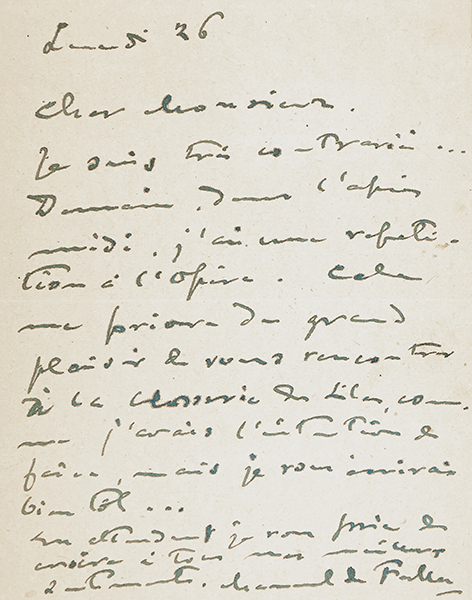 Lundi 26
Cher Monsieur.
Je suis très contrarié...
Demain, dans l'après
midi, j'ai une répéti-
tion à l'Opéra. Cela
me prive du grand
plaisir de vous rencontrer
à la Closerie des Lilas, com-
me j'avais l'intention de
faire, mais je vous écrirai
bientôt...
En attendant je vous prie de
croire à tous mes meilleurs
sentiments. Manuel de Falla